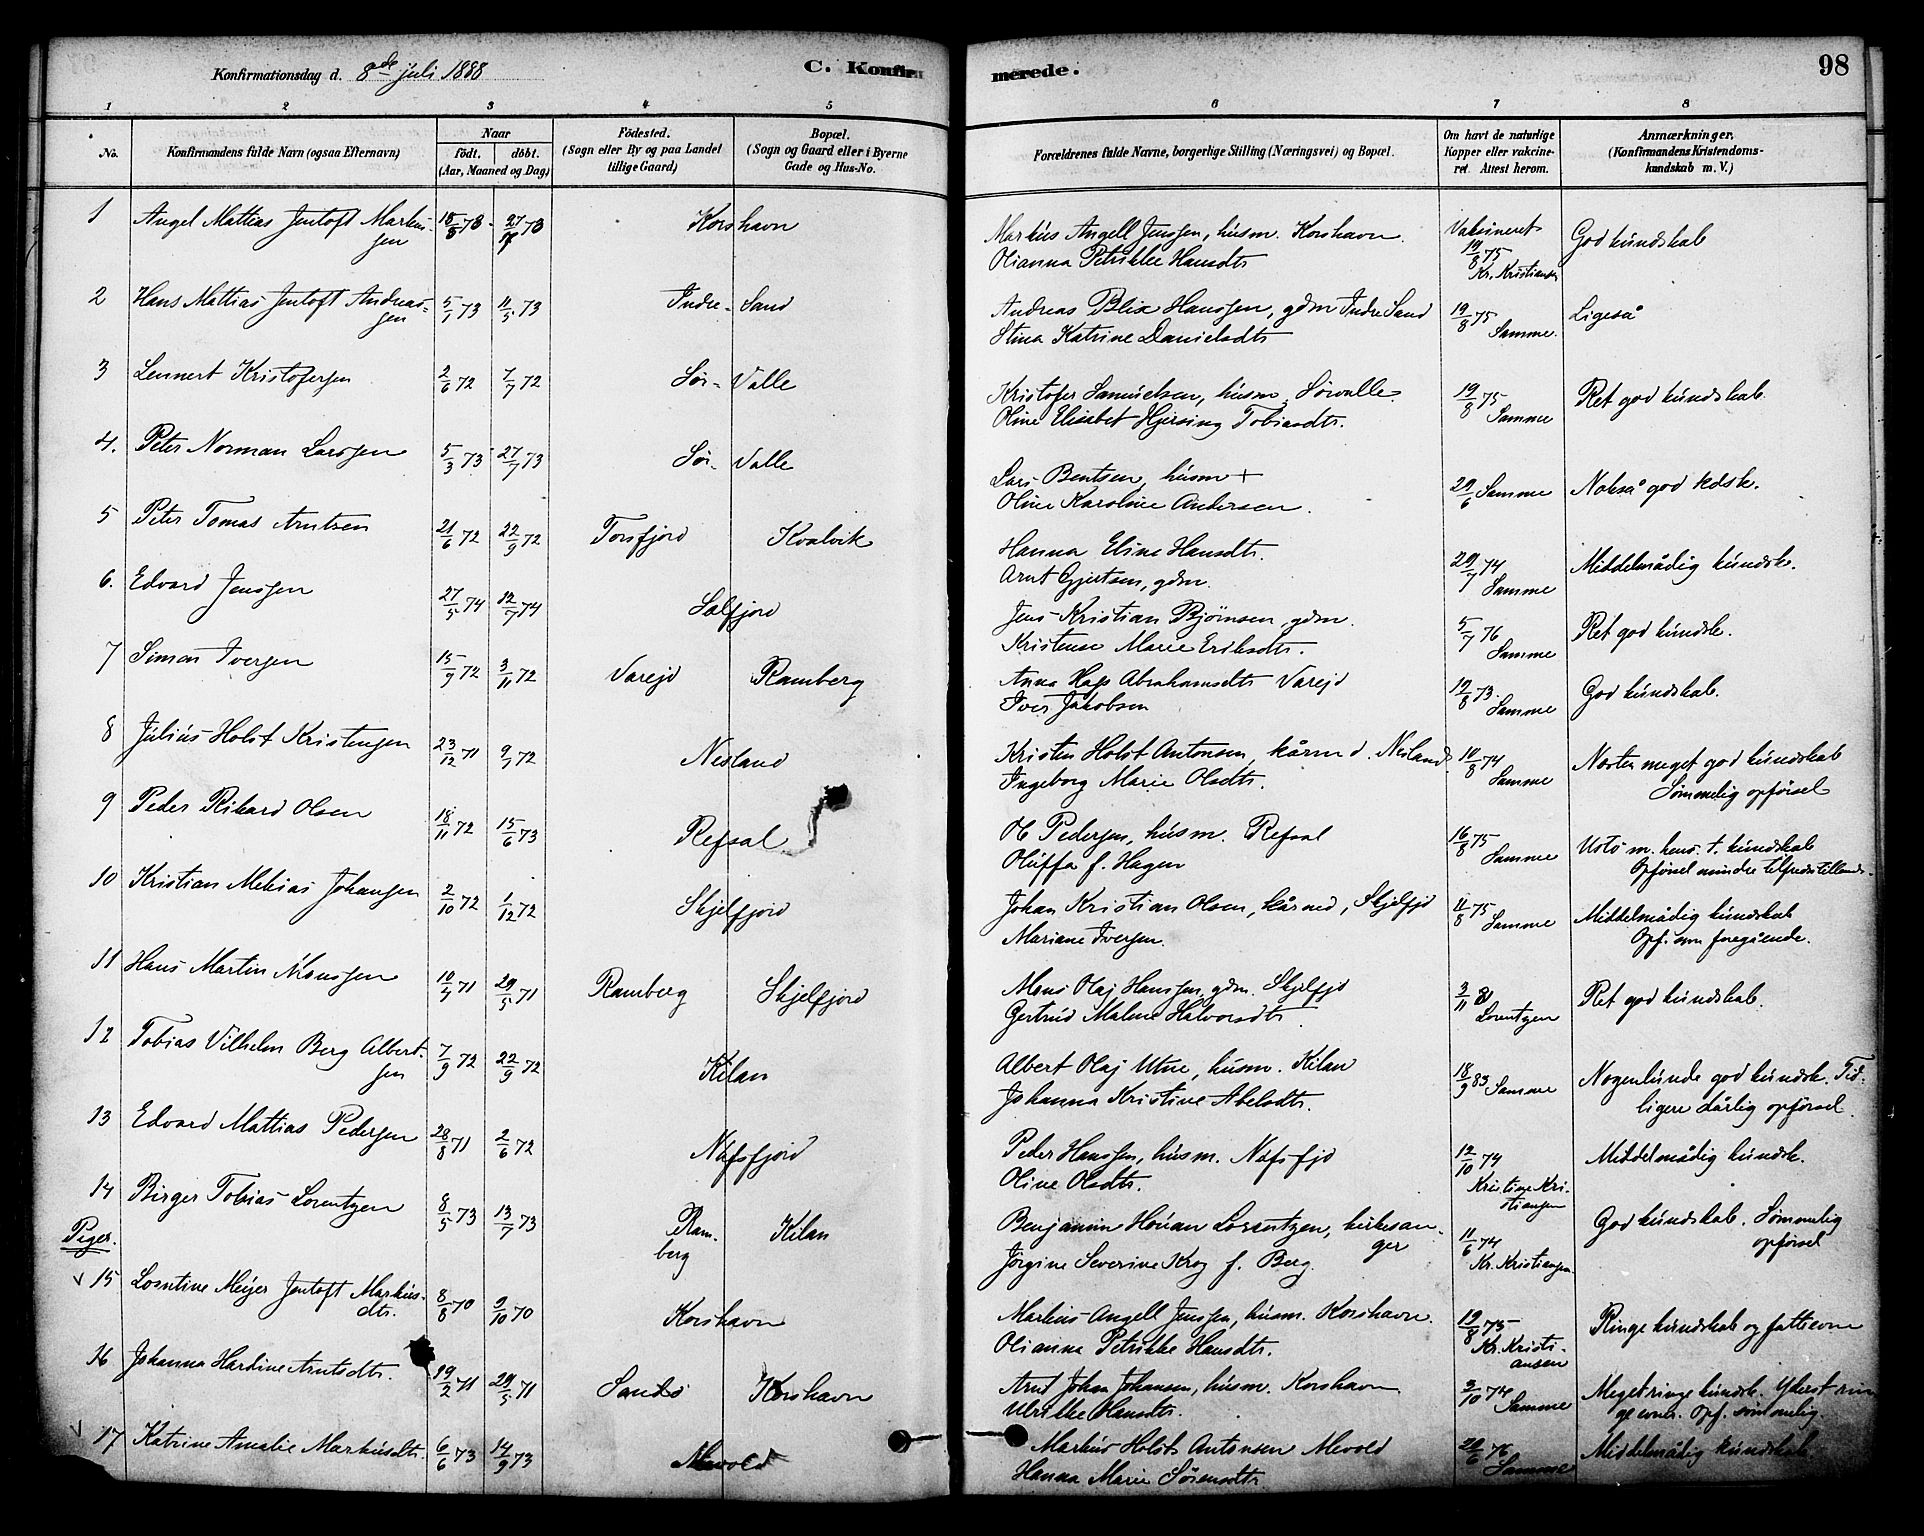 Konfirmationsdag d. 8de juli 1888
C. Konfirmerede.
98
1 2 3 4 5 6 7 8
No.
Konfirmandens fulde Navn (ogsaa Efternavn)
Naar
födt. döbt.
(Aar, Maaned og Dag)
Födested.
(Sogn eller By og paa Landet
tillige Gaard)
Bopæl.
(Sogn og Gaard eller i Byerne
Gade og Hus-No.
Forældrenes fulde Navne, borgerlige Stilling (Næringsvei) og Bopæl.
Om havt de naturlige
Kopper eller vakcine-
ret. Attest herom.
Anmærkninger.
(Konfirmandens Kristendoms-
kundskab m. V.)
1 Angel Mattias Jentoft Markus-
sen
Korshavn
Markus Angell Jensen, husm. Korshavn.
Olianna Petrikke Hansdtr
Vakcineret
19/8 75
Kr. Kristiansen
God kundskab
2 Hans Mattias Jentoft Andreas-
sen
5/1 73 11/5 73
Indre-Sand
Andreas Blix Hanssen, gdm Indre Sand
Stina Katrine Danielsdtr
19/8 75 Samme.
Ligeså
3 Lennert Kristofersen 2/6 72 7/7 72
Sør-Valle
Kristofer Samuelsen, husm, Sørvalle
Oline Elisabet Hjersing Tobiasdtr.
19/8 75 Samme
Ret god kundskab.
4. Peter Norman Larssen 5/3 73 27/7 73
Sør-Valle
Lars Bentsen, husm +
Oline Karoline Andersen.
29/6 Samme
Nokså god kdsk.
5 Peter Tomas Arntsen 21/6 72 22/9 72
Torsfjord Kvalvik
Hanna Eline Hansdtr.
Arnt Gjertsen, gdm.
29/7 74 Samme
Middelmådig kundsk.
6. Edvard Jenssen 27/5 74 12/7 74
Solfjord
Jens Kristian Bjørnsen, gdm.
Kristense Marie Eriksdtr.
5/7 76 Samme
Ret god kundsk.
7 Simon Iversen 15/9 72 3/11 72
Varejd Ramberg
Anna Hags Abrahamsdtr Varejd
Iver Jakobsen
19/8 73. Samme
God kundskab.
8 Julius Holst Kristensen 23/12 71 9/7 72
Nesland
Kristen Holst Antonsen, kårmd. Nesland
Ingeborg Marie Olsdtr.
10/8 74 Samme
Næsten meget god kundskab
Sømmelig opførsel
9 Peder Rikard Olsen 18/11 72 15/6 73
Refsal
Ol. Pedersen, husm. Refsal
Oluffa f. Hagen
16/8 75 Samme
Usto m. hens. t. kundskab
Opførsel mindre tilfredsstillende.
10 Kristian Mekias Johansen 2/10 72 1/12 72
Skjelfjord
Johan Kristian Olsen, kårmd, Skjelfjd
Mariane Iversen.
11/8 75 Samme
Middelmådig kundskab
Opf. som foregående.
11 Hans Martin Monssen 10/4 71 29/5 71
Ramberg Skjelfjord
Mons Olaj Hanssen, gdm. Skjelfjd
Gertrud Malene Halvorsdtr
3/11 81 Lorentzen
Ret god kundskab.
12 Tobias Vilhelm Berg Albert-
sen 7/9 72 22/9 72
Kilan
Albert Olaj Utne, husm. Kilan
Johanna Kristine Abelsdtr.
18/9 83 Samme
Nogenlunde god kundsk. Tid-
ligere dårlig opførsel.
13 Edvard Mattias Pedersen 28/8 71 2/6 72
Nufsfjord
Peder Hanssen, husm. Nufsfjd
Oline Olsdtr.
12/10 74
Kristine Kri-
stiansen
Middelmådig kundsk.
14 Birger Tobias Lorentzen 8/5 73 13/7 73
Ram-
berg
Kilan
Benjamin Houan Lorentzen, kirkesan-
ger
Jørgine Severine Krog f. Berg.
11/6 74
Kr. Kristiansen
God kundskab. Sømmelig
opførsel
Piger.
15 Losntine Meyer Jentoft Markus-
dtr. 8/8 70 9/10 70
Korshavn
Markus Angell Jenssen, husm. Korshavn.
Olianna Petrikke Hansdtr.
19/8 75
Kr. Kristi-
ansen
Ringe kundskab og fatteevne
16 Johanna Hardine Arntsdtr. 19/2 71 29/5 71
Sandø Korshavn
Arnt Johan Johansen, husm. Korshavn
Ulrikke Hansdtr.
3/10 74 Samme
Meget ringe kundsk. Yderst rin
ge evner. Opf. sømmelig.
17 Katrine Amalie Markusdtr. 6/6 73 14/9 73
Mevold
Markus Holst Antonsen Mevold
Hanna Marie Sørensdtr
28/6 76 Samme
Middelmådig kundskab.